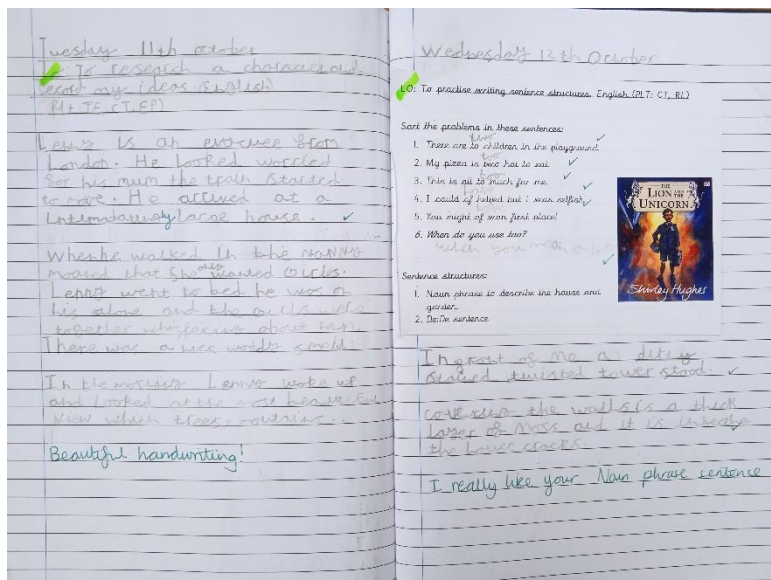 Tuesday 11th october
To research a character and
record my ideas (English)
Lenny is an evacuee from
London. He looked worried
for his mum the train started
to move. He arrived at a
large house.
When he walked in the Nanny
moaned that she wanted Girls.
Lenny went to bed he was on
his alone and the girls were
together whispering about him.
There was a nice smell.
In the morning Lenny woke up
and looked at the most beautiful
view which trees,
Beautiful handwriting!
Wednesday 12th October
LO: To practise writing sentence structures. English (PLT: CT, RL)
Sort the problems in these sentences:
two
1. There are to children in the playground.
too
2. My pizza is two hot to eat.
too
3. This is all to much for me.
have
4. I could of helped but I was selfish
5. You might of won first place!
6. When do you use too?
when you mean a lot
Sentence structures:
1. Noun phrase to describe the house and
garden.
2. De:De sentence
THE
LION AND THE
UNICORN
Shirley Hughes
In front of me a
twisted tower stood.
covering the walls is a thick
layer of moss and it is
the house cracks.
I really like your Noun phrase sentence